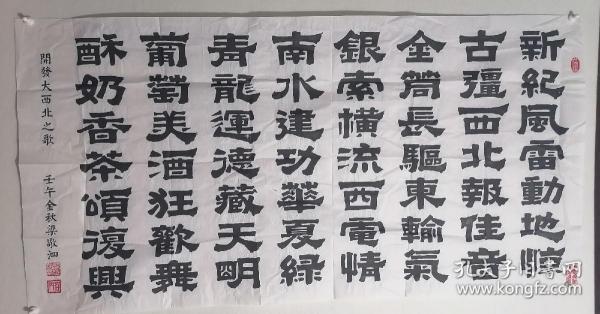 新紀風雷動地恆
古彊西北報佳音
全筒長驅東輸氣
銀索橫流西電情
南水建功華夏綠
青龍運德藏天明
葡萄美酒狂歡舞
酥奶香茶頌復興
開發大西北之歌
壬午金秋梁敬泗
孔夫子旧书网
www.kongfz.com